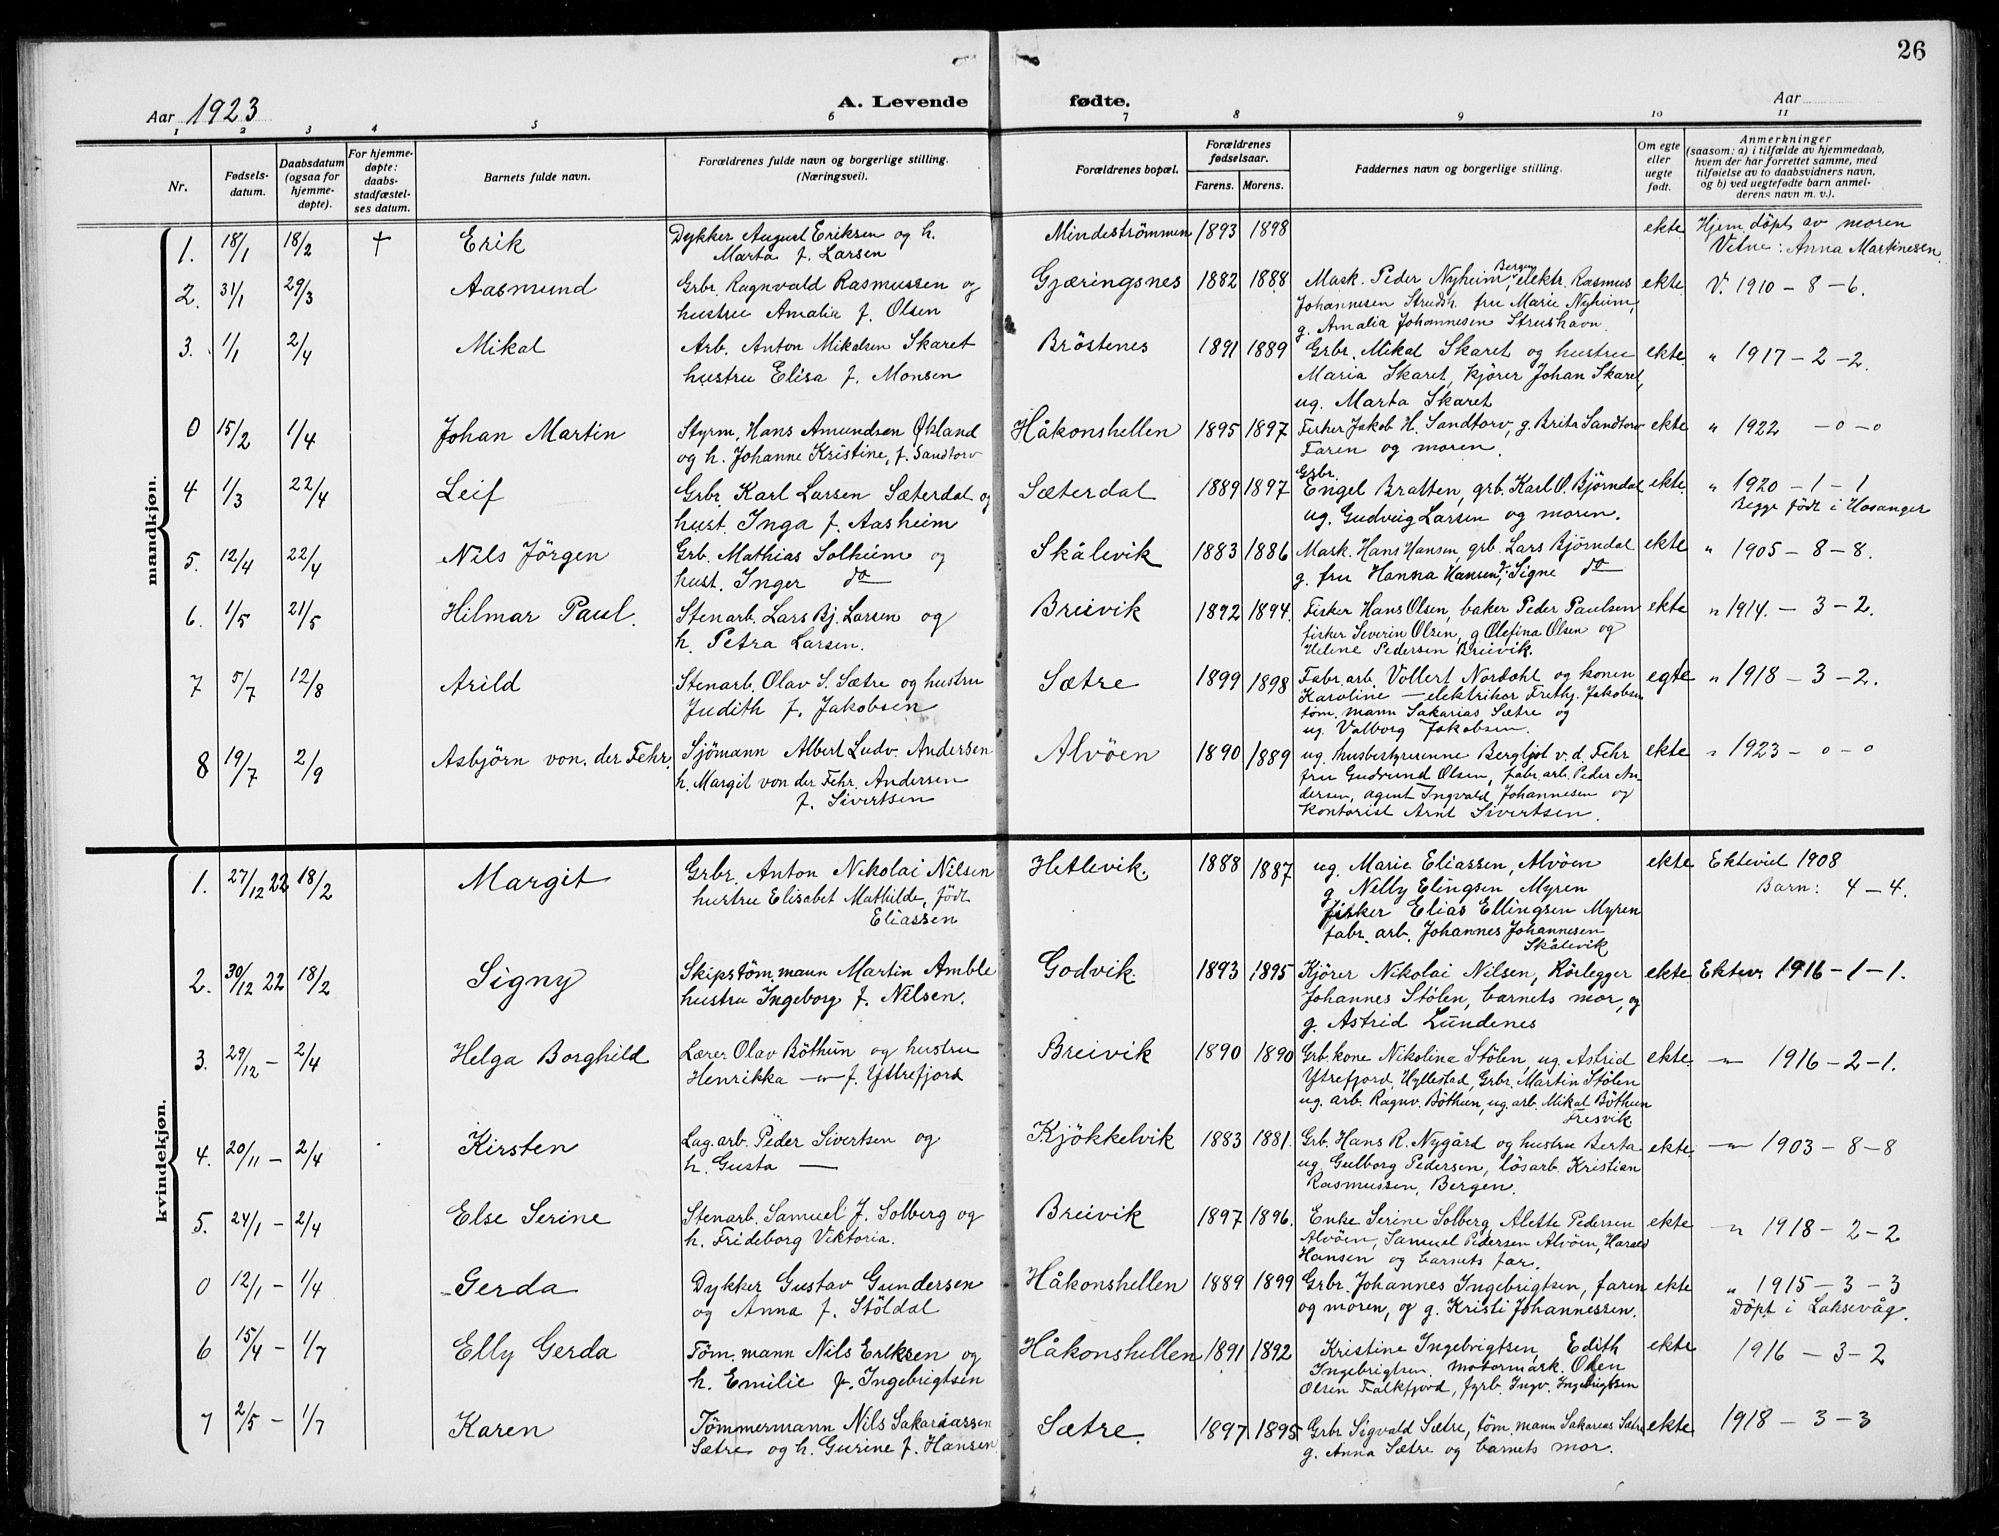 26
Aar 1923
A. Levende fødte.
Aar
1 2 3 4 5 6 7 8 9 10 11
Nr.
Fødsels-
datum.
Daabsdatum
(ogsaa for
hjemme-
døpte).
For hjemme-
døpte:
daabs-
stadfæstel-
ses datum.
Barnets fulde navn.
Forældrenes fulde navn og borgerlige stilling.
(Næringsvei).
Forældrenes bopæl.
Forældrenes
fødselsaar.
Farens. Morens.
Faddernes navn og borgerlige stilling.
Om egte
eller
uegte
født.
Anmerkninger
(saasom: a) i tilfælde av hjemmedaab,
hvem der har forrettet samme, med
tilføielse av to daabsvidners navn,
og b) ved uegtefødte barn anmel-
derens navn m. v.).
mandkjøn.
1. 18/1 18/2 † Erik
Dykker August Eriksen og h.
Marta f. Larsen
Mindeströmmen 1893 1898
ekte
Hjem.döpt av moren
Vitne: Anna Martinesen.
2. 31/1 29/3 Aasmund
Grbr. Ragnvald Rasmussen og
hustru Amalia f. Olsen
Gjæringsnes 1882 1888
Mask. Peder Nyheim, Bergen, elektr. Rasmus
Johannesen Strudsh. fru Marie Nyheim,
g. Amalia Johannesen Strushavn.
ekte
V. 1910 – 8 – 6.
3. 1/1 2/4 Mikal
Arb. Anton Mikalsen Skaret
hustru Elisa f. Monsen
Bröstenes 1891 1889
Grbr. Mikal Skaret og hustru
Maria Skaret, kjörer Johan Skaret,
ug. Marta Skaret
ekte
" 1917 – 2 – 2.
0 15/2 1/4 Johan Martin
Styrm. Hans Amundsen Økland
og h. Johanne Kristine, f. Sandtorv
Håkonshellen 1895 1897
Fisker Jakob H. Sandtorv, g. Brita Sandtorv
Faren og moren.
ekte
" 1922 – 0 – 0
4 1/3 22/4 Leif
Grbr. Karl Larsen Sæterdal og
hust. Inga f. Aasheim
Sæterdal 1889 1897
Grbr.
Engel Bratten, grb. Karl O. Björndal
ug. Gudveig Larsen og moren.
ekte.
" 1920 – 1 – 1
Begge födt i Hosanger
5. 12/4 22/4 Nils Jörgen
Grb. Mathias Solheim og
hust. Inger do
Skålevik 1883 1886
Mask. Hans Hansen, grb. Lars Bjørndal
g. fru Hanna Hansen, g. Signe do
ekte
" 1905 – 8 – 8.
6. 1/5 21/5 Hilmar Paul.
Stenarb. Lars Bj. Larsen og
h. Petra Larsen.
Breivik 1892 1894.
Fisker Hans Olsen, baker Peder Paulsen
fisker Severin Olsen, g. Olefina Olsen og
Helene Pedersen Breivik.
ekte
" 1914. – 3 – 2.
7 5/7 12/8 Arild
Stenarb. Olav S. Sætre og hustru
Judith f. Jakobsen
Sætre 1899 1898
Fabr. arb. Vollert Nordahl og konen
Karoline — elektriker Frithj. Jakobsen
töm. mann Sakarias Sætre og
ug. Valborg Jakobsen.
egte
" 1918 – 3 – 2.
8 19/7 2/9 Asbjörn von. der Fehr.
Sjömann Albert Ludv. Andersen
h. Margit von der Fehr. Andersen
f. Sivertsen
Alvöen 1890 1889
ug. husbestyrerinne Bergljot v. d. Fehr
fru Gudrund Olsen, fabr. arb. Peder An-
dersen, agent Ingvald Johannesen og
kontorist Arnt Sivertsen.
ekte
" 1923 – 0 – 0
kvindekjøn.
1. 27/12 22 18/2 Margit
Grbr. Anton Nikolai Nilsen
hustru Elisabet Mathilde, födt
Eliassen
Hetlevik. 1888 1887
ug. Marie Eliassen, Alvöen
g. Nelly Elingsen Myren
fisker Elias Ellingsen Myren
fabr. arb. Johannes Johannesen
Skålevik
ekte
Ektevid 1908
Barn: 4 – 4.
2. 30/12 22 18/2 Signy
Skipstöm. mann Martin Amble
hustru Ingeborg f. Nilsen.
Godvik. 1893 1895
Kjörer Nikolai Nilsen, Rörlegger
Johannes Stölen, barnets mor, og
g. Astrid Lundenes
ekte
Ektev. 1916 – 1 – 1.
3. 29/12 – 2/4 Helga Borghild
Lærer Olav Böthun og hustru
Henrikka – " – f. Yttrefjord
Breivik 1890 1890
Grb. kone Nikolina Stölen, ug. Astrid
Ytrefjord, Hyllestad, Grbr. Martin Stölen
ug. arb. Ragnv. Böthun, ug. arb. Mikal Böthun
Fresvik
ekte
– " – 1916 – 2 – 1.
4. 20/11 – 2/4 Kirsten
Lag. arb. Peder Sivertsen og
h. Gusta —
Kjökkelvik 1883 1881.
Grb. Hans R. Nygård og hustru Berta
ug. Gulborg Pedersen, lösarb. Kristian
Rasmussen, Bergen.
ekte
– " – 1903 – 8 – 8
5. 24/1 – 2/4 Else Serine
Stenarb. Samuel J. Solberg og
h. Frideborg Viktoria.
Breivik 1897 1896.
Enke Serine Solberg, Alette Pedersen
Alvöen, Samuel Pedersen Alvöen, Harald
Hansen og barnets far.
ekte
" 1918 – 2 – 2
0 12/1 – 1/4 Gerda
Dykker Gustav Gundersen
og Anna f. Stöldal
Håkonshellen 1889 1899
Grbr. Johannes Ingebrigtsen, faren
og moren, og g. Kristi Johannessen.
ekte
" 1915 – 3 – 3
Döpt i Laksevåg.
6 15/4 – 1/7 Elly Gerda
Töm. mann Nils Eriksen og
h. Emilie f. Ingebrigtsen
Håkonshellen 1891 1892
Kristine Ingebrigtsen, Edith
Ingebrigtsen motormask. Olsen
Olsen Falkfjord, fyrb. Ingv. Ingebrigtsen
ekte
1916 – 3 – 2
7 2/5 – 1/7 Karen
Tömmermann Nils Sakariassen
Sætre og h. Gurine f. Hansen
Sætre. 1897 1895
Grbr Sigvald Sætre, töm. mann Sakarias Sætre
g. Anna Sætre og barnets mor.
ekte
1918 – 3 – 3